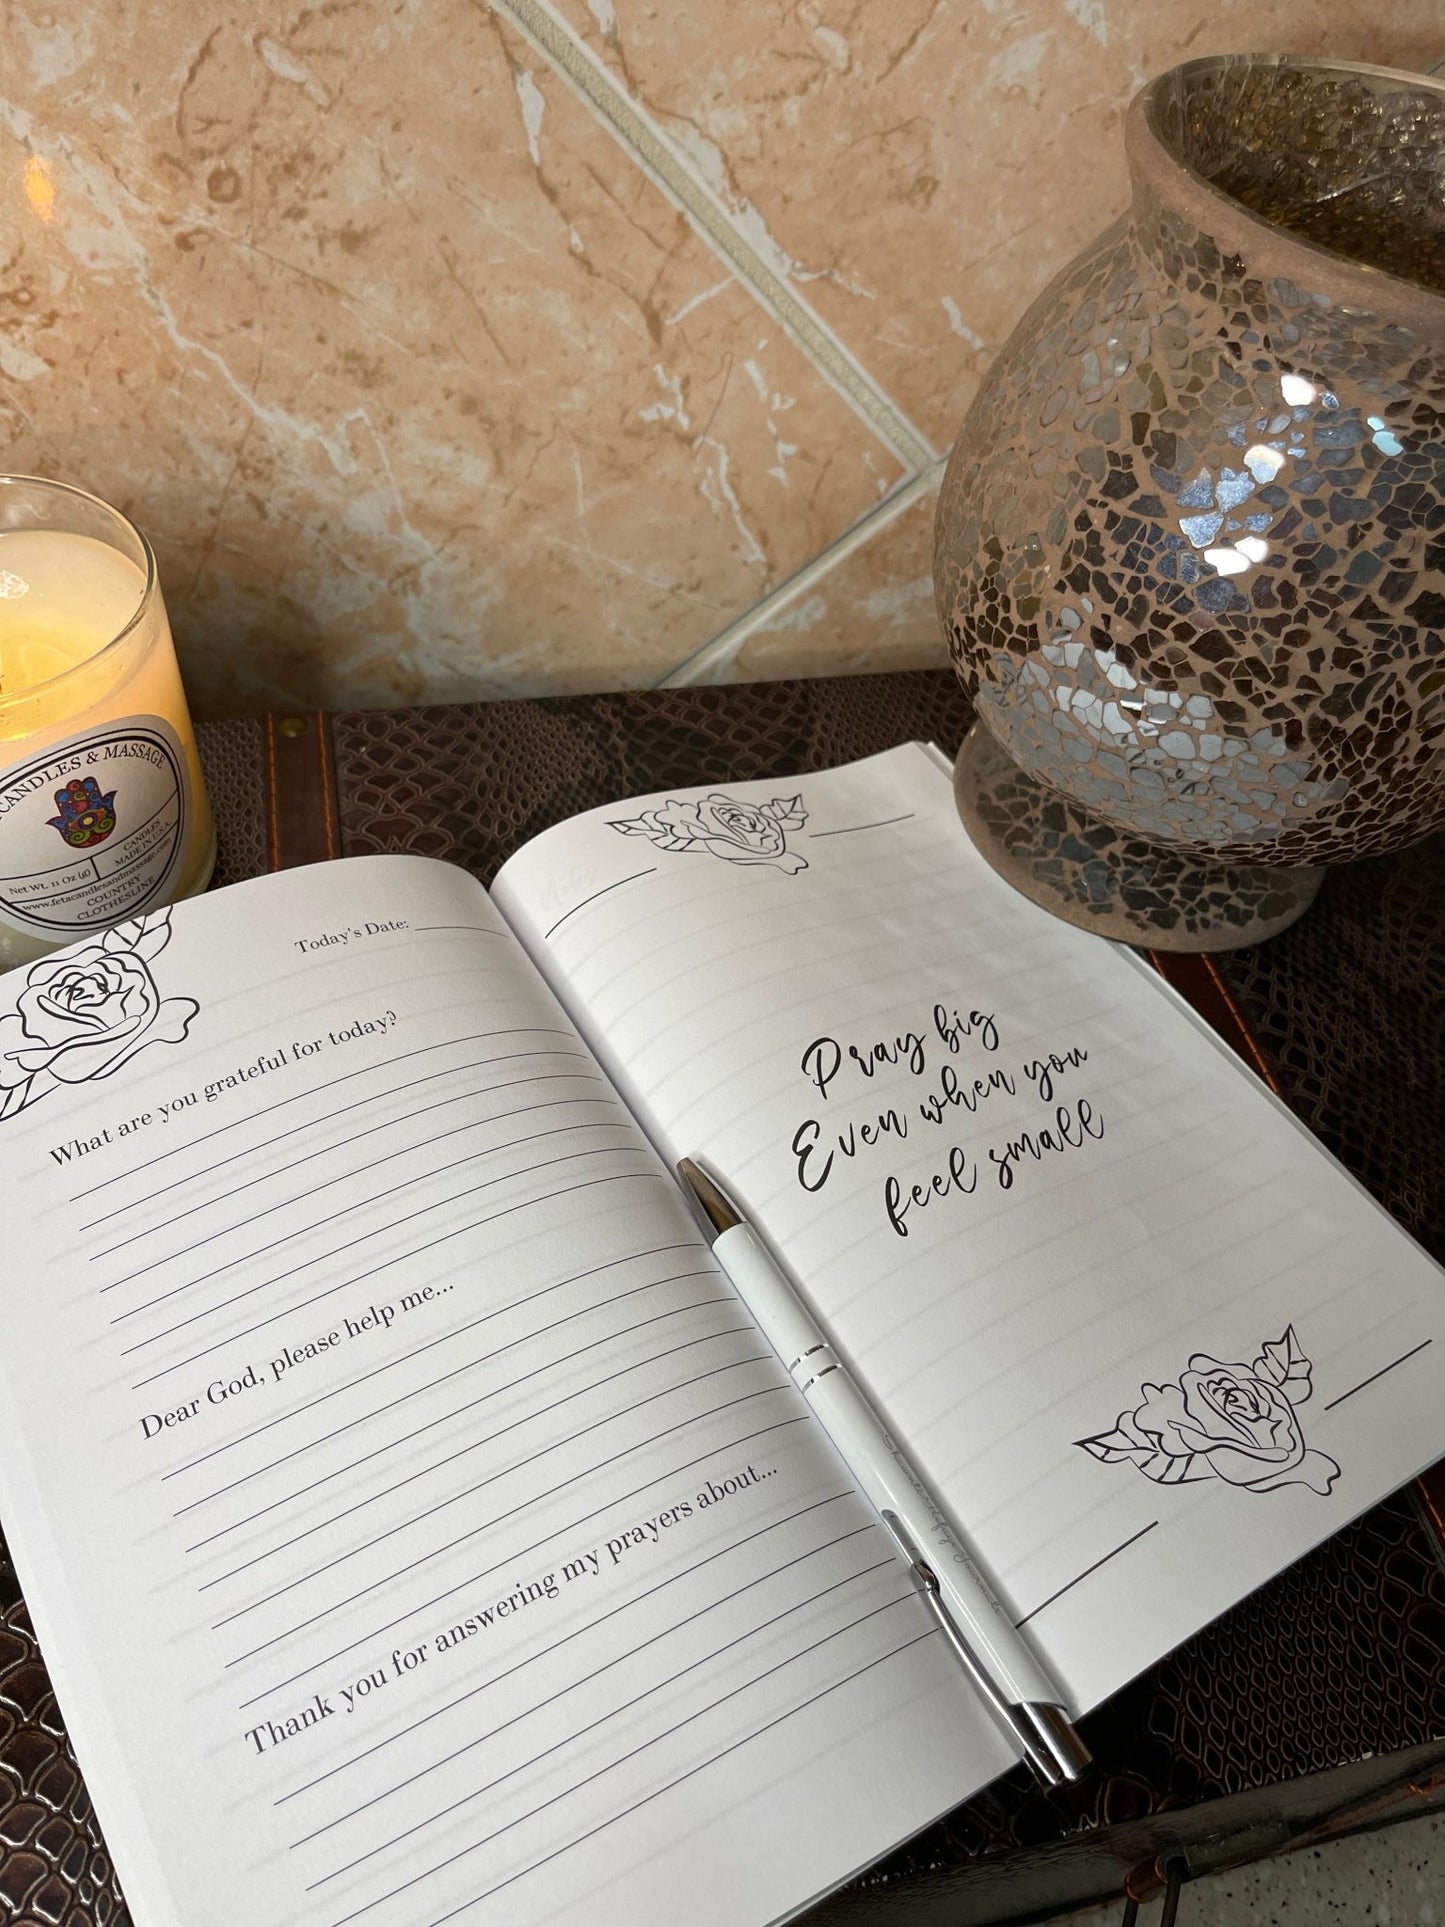 CANDLES & MASSAGE
CANDLES
MADE IN U.S.A.
Net Wt. 11 Oz (g)
www.fetacandlesandmassage.com
COUNTRY
CLOTHESLINE
Today's Date:
What are you grateful for today?
Dear God, please help me...
Thank you for answering my prayers about...
Pray big
Even when you
feel small